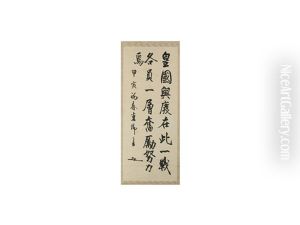 皇國興廢在此一戰
各員一層奮勵努力
焉 甲寅
NiceArtGallery.com